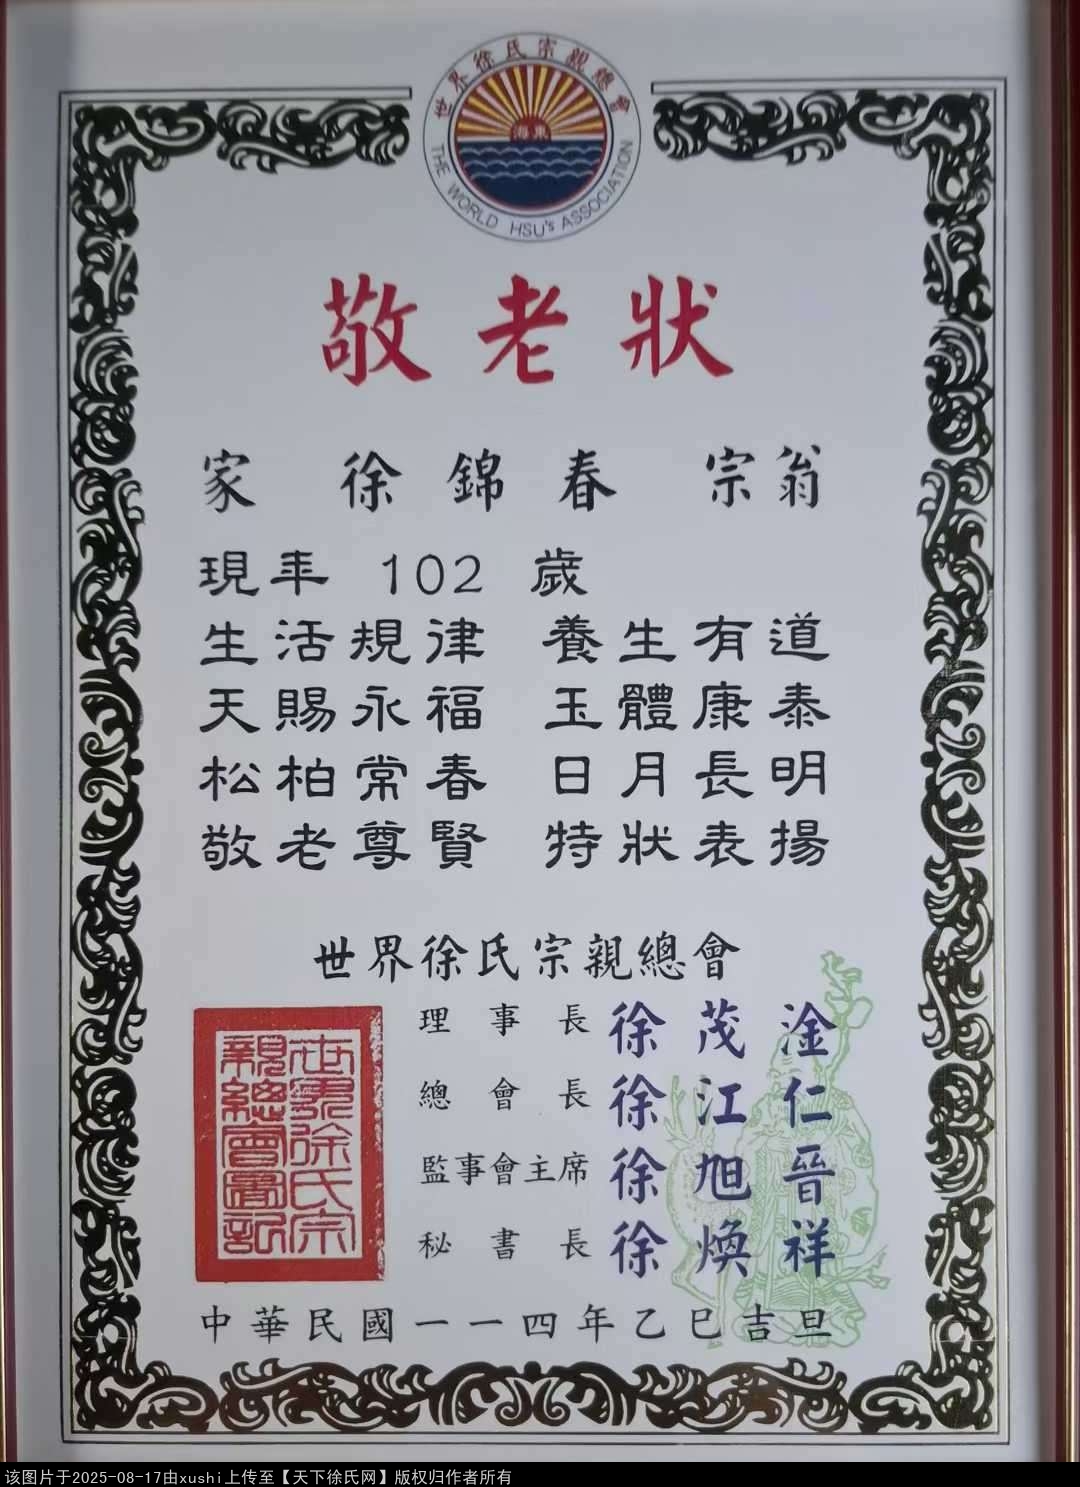 世界徐氏宗親總會
東海
THE WORLD HSU's ASSOCIATION
敬老狀
家 徐錦春 宗翁
現年 102 歲
生活規律 養生有道
天賜永福 玉體康泰
松柏常春 日月長明
敬老尊賢 特狀表揚
世界徐氏宗親總會
理事長 徐茂淦
總會長 徐江仁
監事會主席 徐旭晉
秘書長 徐煥祥
世界徐氏宗親總會圖記
中華民國一一四年乙巳吉旦
该图片于2025-08-17由xushi上传至【天下徐氏网】版权归作者所有